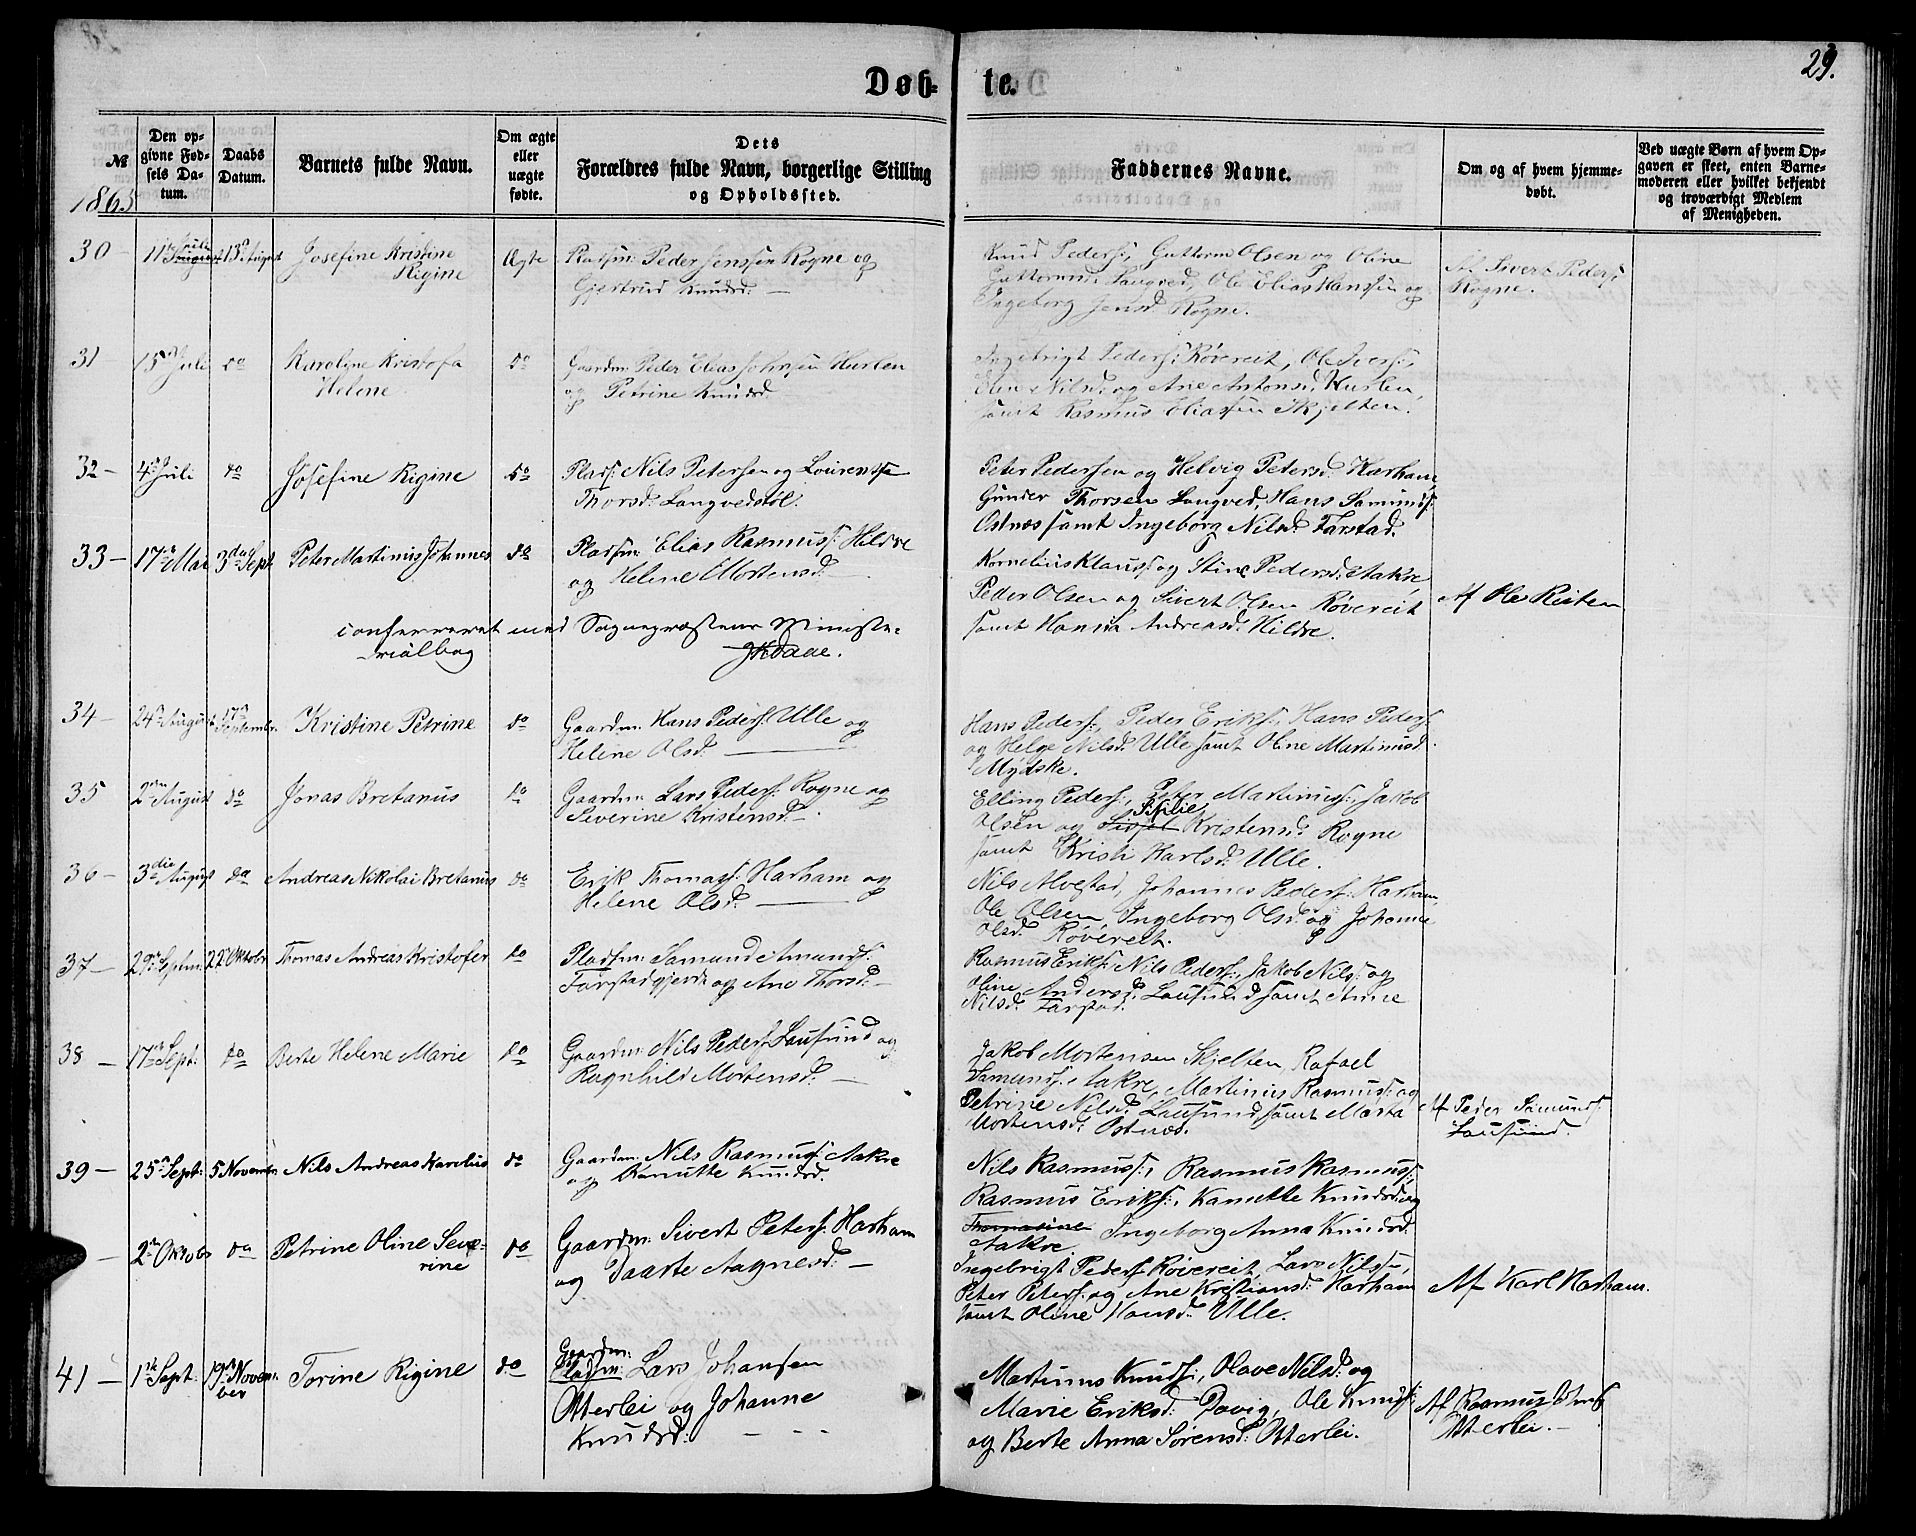 29.
Døb- te.
№
1865
Den op-
givne Fød-
sels Da-
tum.
Daabs
Datum.
Barnets fulde Navn.
Om ægte
eller
uægte
fødte.
Dets
Forældres fulde Navn, borgerlige Stilling
og Opholdssted.
Faddernes Navne.
Om og af hvem hjemme-
døbt.
Ved uægte Børn af hvem Op-
gaven er skeet, enten Barne-
moderen eller hvilket bekjendt
og troværdigt Medlem
af Menigheden.
30 - 11te Juli 13de August Josefine Kristine
Rigine
Ægte Pladsm: Peder Jenssen Rogne og
Gjertrud Knudsd: —
Knud Peders:, Guttorm Olsen og Oline
Guttormsd: Langved, Ole Elias Hanssen og
Ingeborg Jensd. Rogne.
Af Sivert Peders:
Rogne.
31 15de Juli do Karoline Kristofa
Helene
do Gaardm: Peder Elias Johnsen Huslen
og Petrine Knudsd.
Ingebrigt Peders: Røvereit, Ole Ivers:,
Elen Nilsd. og Ane Antonsd. Huslen,
samt Rasmus Eliassen Skjelten.
32 - 4de Juli do Josefine Rigine do Plads: Nils Petersen og Lourentse
Thorsd. Langvedstøl.
Peter Pedersen og Helvig Petersd. Harham,
Gunder Thorsen Langved, Hans Samunds:
Østnæs samt Ingeborg Nilsd. Farstad.
33 - 17de Mai 3die Sept. Peter Martinus Johannes do Pladsm: Elias Rasmuss: Hildre
og Helene Mortensd. —
Kornelius Klauss: og Stine Pedersd. Aakre,
Peder Olsen og Sivert Olsen Røvereit
samt Hanna Andreasd. Hildre.
Af Ole Reiten
conferreret med Sognepræstens Ministe-
rialbog
JKDaae.
34 - 24de August 17de September Kristine Petrine do Gaardm: Hans Peders: Ulle og
Helene Olsd. —
Hans Peders:, Peder Eriks:, Hans Peders:
og Helge Nilsd. Ulle samt Oline Martinusd.
Mydske.
35 2den August do Jonas Bretanus do Gaardm: Lars Peders: Rogne og
Severine Kristensd. —
Elling Peders:, Peter Martinuss:, Jakob
Olsen og Sissel Sisilie Kristensd. Rogne
samt Kristi Karlsd. Ulle.
36 - 3die August do Andreas Nikolai Bretanus do Erik Thomass: Harham og
Helene Olsd. —
Nils Alvestad, Johannes Peders: Harham,
Ole Olsen, Ingeborg Olsd. og Johanne
Olsd. Røvereit.
37 - 29de Septm: 22de Oktobr Thomas Andreas Kristofer do Pladsm: Samund Amunds:
Farstadgjerde og Ane Thorsd. —
Rasmus Eriks: Nils Peders:, Jakob Nils: og
Oline Andersd. Lausund samt Anne
Nilsd. Farstad.
38 - 17de Sept: do Berte Helene Marie do Gaardm: Nils Peders: Lausund og
Ragnhild Mortensd. —
Jakob Mortensen Skjelten, Rafael
Samunds: Aakre, Martinus Rasmuss: og
Petrine Nilsd. Lausund samt Marta
Mortensd. Østnæs.
Af Peder Samunds:
Lausund.
39 - 25de Sept: 5 Novembr. Nils Andreas Karelius do Gaardm: Nils Rasmuss: Aakre
og Kanutte Knudsd.
Nils Rasmuss:, Rasmus Rasmuss:,
Rasmus Eriks:, Kanutte Knudsd. og
Thomasine Ingeborg Anna Knudsd.
Aakre.
- 2den Oktobr do Petrine Oline Seve-
rine
do Gaardm: Sivert Peters: Harham
og Daarte Aagnesd: —
Ingebrigt Peders: Røvereit, Lars Nils:,
Peter Peters: og Ane Kristiansd. Harham
samt Oline Hansd. Ulle.
Af Karl Harham.
41 - 1ste Sept. 19de Novem-
ber
Torine Rigine do Gaardm:
Pladsm: Lars Johansen
Otterlei og Johanne
Knudsd: —
Martinus Knuds:, Olave Nilsd. og
Marie Eriksd: Davig, Ole Knuds:
og Berte Anna Sørensd. Otterlei.
Af Rasmus
Otterlei.